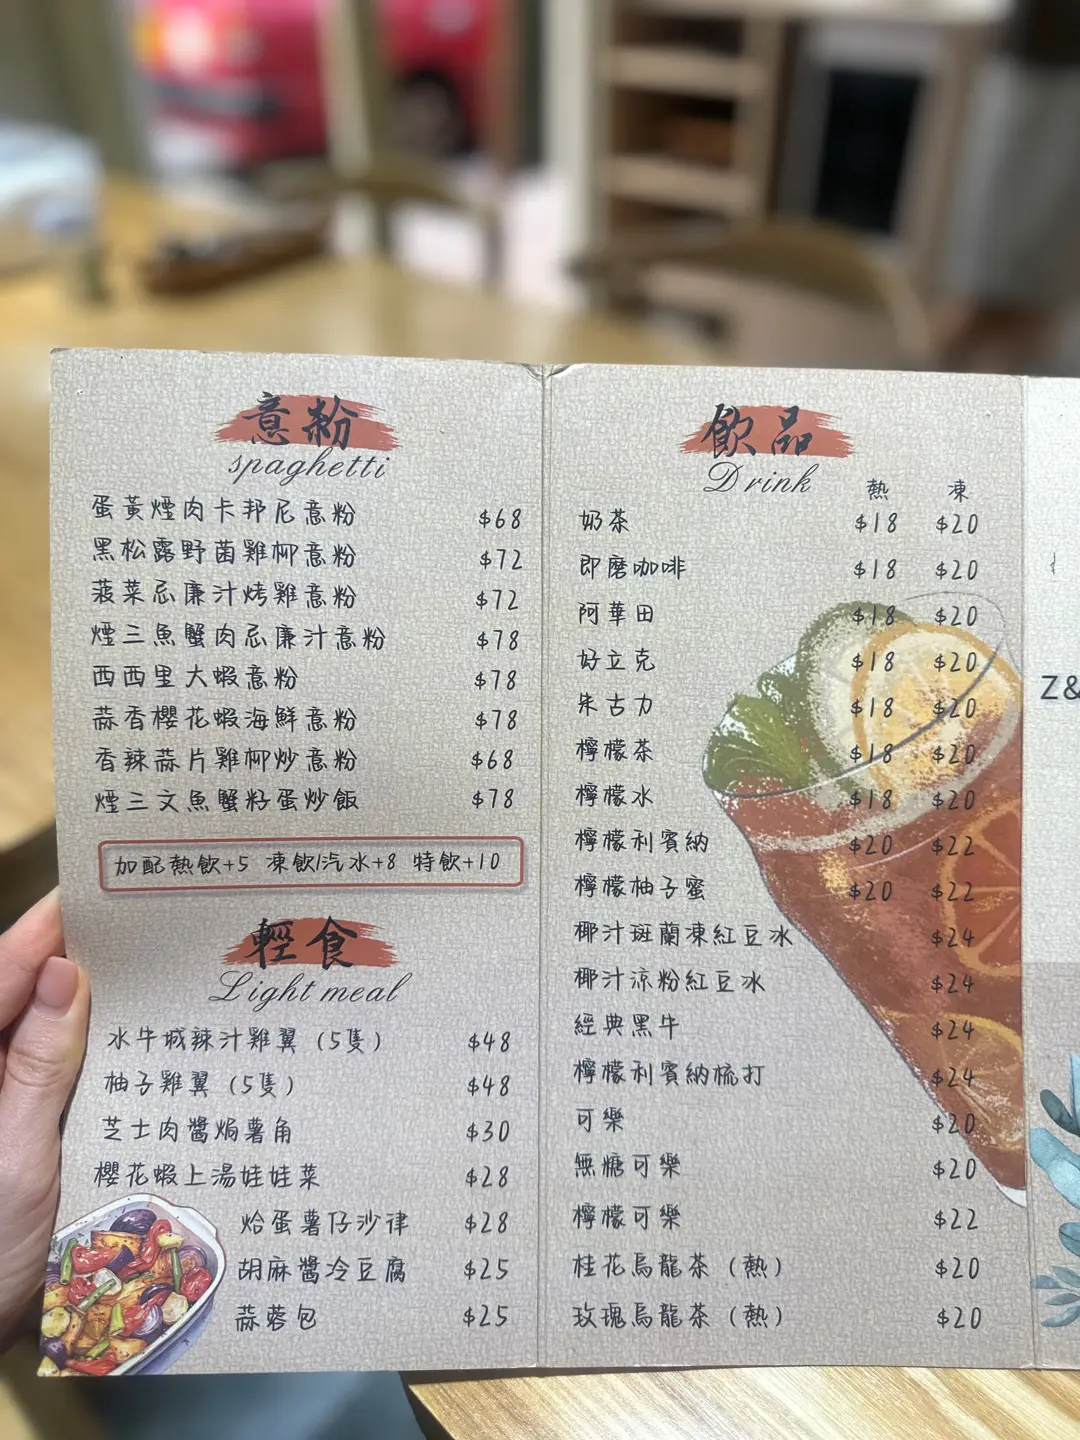 意粉
spaghetti
蛋黃煙肉卡邦尼意粉 $68
黑松露野菌雞柳意粉 $72
菠菜忌廉汁烤雞意粉 $72
煙三魚蟹肉忌廉汁意粉 $78
西西里大蝦意粉 $78
蒜香櫻花蝦海鮮意粉 $78
香辣蒜片雞柳炒意粉 $68
煙三文魚蟹籽蛋炒飯 $78
加配熱飲+5 凍飲/汽水+8 特飲+10
輕食
Light meal
水牛城辣汁雞翼（5隻） $48
柚子雞翼（5隻） $48
芝士肉醬焗薯角 $30
櫻花蝦上湯娃娃菜 $28
烚蛋薯仔沙律 $28
胡麻醬冷豆腐 $25
蒜蓉包 $25
飲品
Drink
熱 凍
奶茶 $18 $20
即磨咖啡 $18 $20
阿華田 $18 $20
好立克 $18 $20
朱古力 $18 $20
檸檬茶 $18 $20
檸檬水 $18 $20
檸檬利賓納 $20 $22
檸檬柚子蜜 $20 $22
椰汁斑蘭凍紅豆冰 $24
椰汁涼粉紅豆冰 $24
經典黑牛 $24
檸檬利賓納梳打 $24
可樂 $20
無糖可樂 $20
檸檬可樂 $22
桂花烏龍茶（熱） $20
玫瑰烏龍茶（熱） $20
Z&